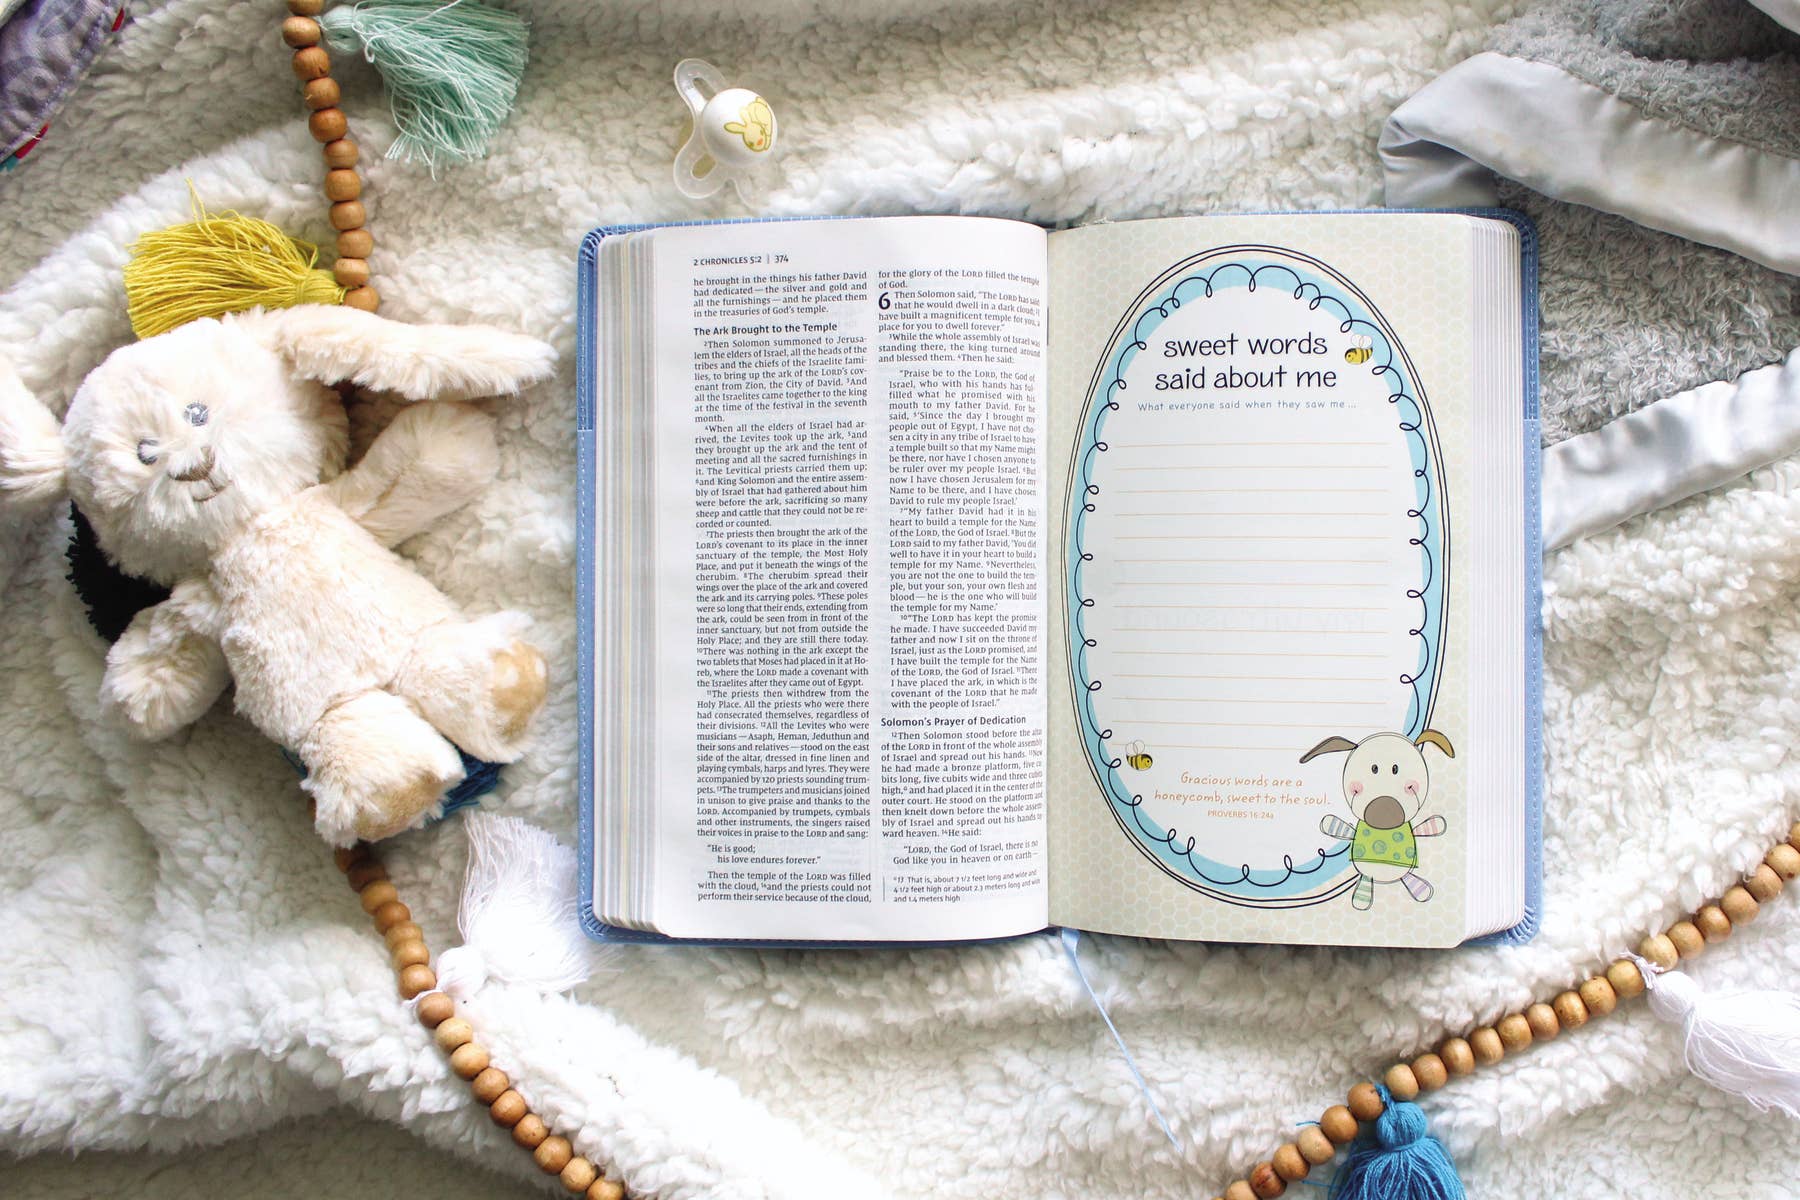 2 CHRONICLES 5:2 | 374
he brought in the things his father David
had dedicated — the silver and gold and
all the furnishings — and he placed them
in the treasuries of God's temple.
The Ark Brought to the Temple
2Then Solomon summoned to Jerusa-
lem the elders of Israel, all the heads of the
tribes and the chiefs of the Israelite fami-
lies, to bring up the ark of the LORD's cov-
enant from Zion, the City of David. 3And
all the Israelites came together to the king
at the time of the festival in the seventh
month.
4When all the elders of Israel had ar-
rived, the Levites took up the ark, 5and
they brought up the ark and the tent of
meeting and all the sacred furnishings in
it. The Levitical priests carried them up;
6and King Solomon and the entire assem-
bly of Israel that had gathered about him
were before the ark, sacrificing so many
sheep and cattle that they could not be re-
corded or counted.
7The priests then brought the ark of the
LORD's covenant to its place in the inner
sanctuary of the temple, the Most Holy
Place, and put it beneath the wings of the
cherubim. 8The cherubim spread their
wings over the place of the ark and covered
the ark and its carrying poles. 9These poles
were so long that their ends, extending from
the ark, could be seen from in front of the
inner sanctuary, but not from outside the
Holy Place; and they are still there today.
10There was nothing in the ark except the
two tablets that Moses had placed in it at Ho-
reb, where the LORD made a covenant with
the Israelites after they came out of Egypt.
11The priests then withdrew from the
Holy Place. All the priests who were there
had consecrated themselves, regardless of
their divisions. 12All the Levites who were
musicians — Asaph, Heman, Jeduthun and
their sons and relatives — stood on the east
side of the altar, dressed in fine linen and
playing cymbals, harps and lyres. They were
accompanied by 120 priests sounding trum-
pets. 13The trumpeters and musicians joined
in unison to give praise and thanks to the
LORD. Accompanied by trumpets, cymbals
and other instruments, the singers raised
their voices in praise to the LORD and sang:
"He is good;
his love endures forever."
Then the temple of the LORD was filled
with the cloud, 14and the priests could not
perform their service because of the cloud,
for the glory of the LORD filled the temple
of God.
6 Then Solomon said, "The LORD has said
that he would dwell in a dark cloud; 2I
have built a magnificent temple for you, a
place for you to dwell forever."
3While the whole assembly of Israel was
standing there, the king turned around
and blessed them. 4Then he said:
"Praise be to the LORD, the God of
Israel, who with his hands has ful-
filled what he promised with his
mouth to my father David. For he
said, 5'Since the day I brought my
people out of Egypt, I have not cho-
sen a city in any tribe of Israel to have
a temple built so that my Name might
be there, nor have I chosen anyone to
be ruler over my people Israel. 6But
now I have chosen Jerusalem for my
Name to be there, and I have chosen
David to rule my people Israel.'
7"My father David had it in his
heart to build a temple for the Name
of the LORD, the God of Israel. 8But the
LORD said to my father David, 'You did
well to have it in your heart to build a
temple for my Name. 9Nevertheless,
you are not the one to build the tem-
ple, but your son, your own flesh and
blood — he is the one who will build
the temple for my Name.'
10"The LORD has kept the promise
he made. I have succeeded David my
father and now I sit on the throne of
Israel, just as the LORD promised, and
I have built the temple for the Name
of the LORD, the God of Israel. 11There
I have placed the ark, in which is the
covenant of the LORD that he made
with the people of Israel."
Solomon's Prayer of Dedication
12Then Solomon stood before the altar
of the LORD in front of the whole assembly
of Israel and spread out his hands. 13Now
he had made a bronze platform, five cu-
bits long, five cubits wide and three cubits
high,a and had placed it in the center of the
outer court. He stood on the platform and
then knelt down before the whole assem-
bly of Israel and spread out his hands to-
ward heaven. 14He said:
"LORD, the God of Israel, there is no
God like you in heaven or on earth —
a 13 That is, about 7 1/2 feet long and wide and
4 1/2 feet high or about 2.3 meters long and wide
and 1.4 meters high
sweet words
said about me
What everyone said when they saw me ...
Gracious words are a
honeycomb, sweet to the soul.
PROVERBS 16:24a